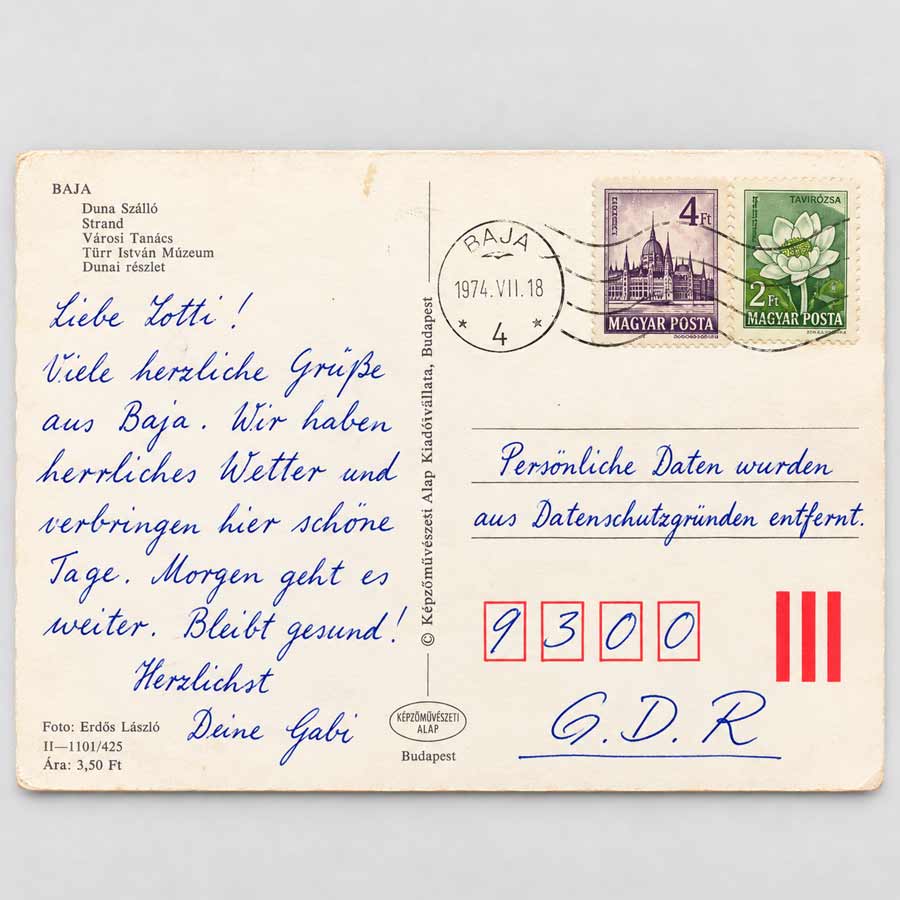 BAJA
Duna Szálló
Strand
Városi Tanács
Türr István Múzeum
Dunai részlet
Liebe Lotti!
Viele herzliche Grüße
aus Baja. Wir haben
herrliches Wetter und
verbringen hier schöne
Tage. Morgen geht es
weiter. Bleibt gesund!
Herzlichst
Deine Gabi
Foto: Erdős László
II—1101/425
Ára: 3,50 Ft
© Képzőművészeti Alap Kiadóivállata, Budapest
KÉPZŐMŰVÉSZETI
ALAP
Budapest
BAJA
1974.VII.18
* 4 *
4 Ft
MAGYAR POSTA
TAVIRÓZSA
2 Ft
MAGYAR POSTA
Persönliche Daten wurden
aus Datenschutzgründen entfernt.
9300
G.D.R